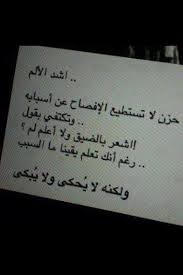 أشد الألم ..
حزن لا تستطيع الإفصاح عن أسبابه
وتكتفي بقول ..
اشعر بالضيق ولا أعلم لم ؟!
رغم أنك تعلم يقينا ما السبب ..
ولكنه لا يُحكى ولا يُبكى